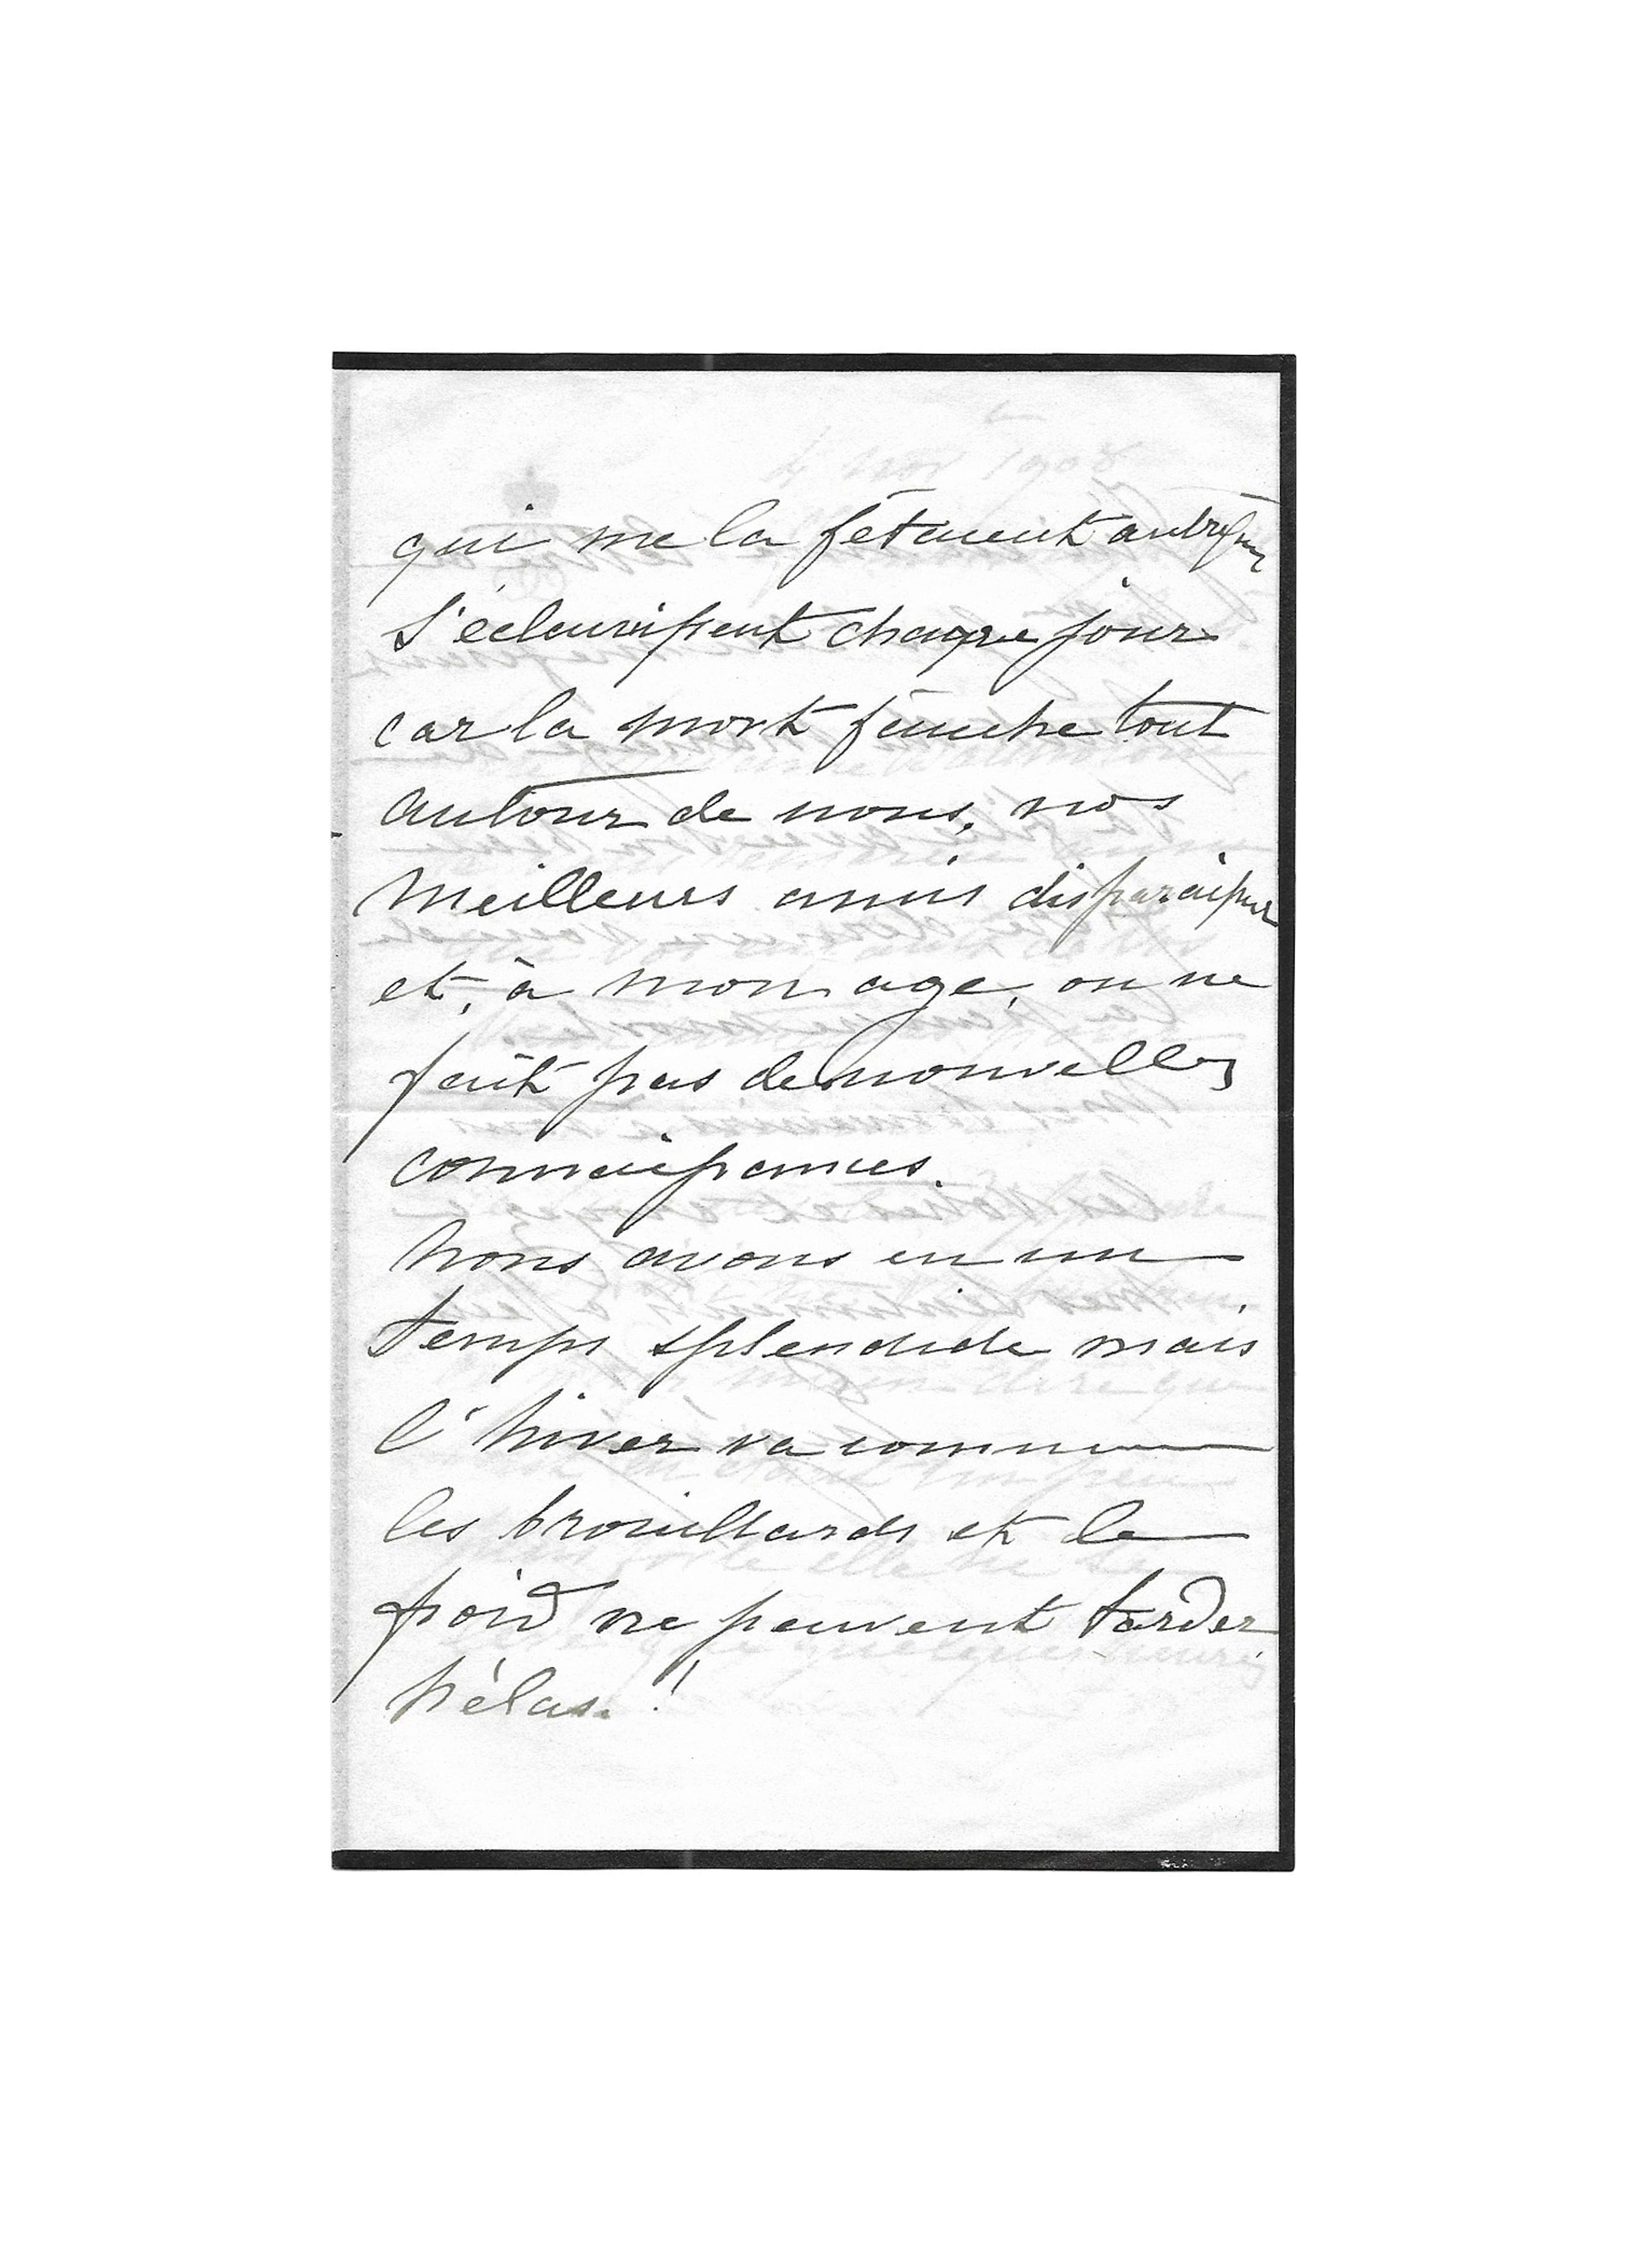 qui me la fêtaient autrefois
s'éclaircissent chaque jour
car la mort fauche tout
autour de nous, nos
meilleurs amis disparaissent
et, à mon age, on ne
fait pas de nouvelles
connaissances.
Nous avons eu un
temps splendide mais
l'hiver va
les brouillards et le
froid ne peuvent tarder
hélas !